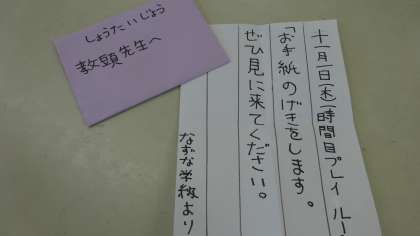 しょうたいじょう
教頭先生へ
十一月一日(木)一時間目プレイルー
「お手紙のげきをします。
ぜひ見に来てください。
なずな学級より